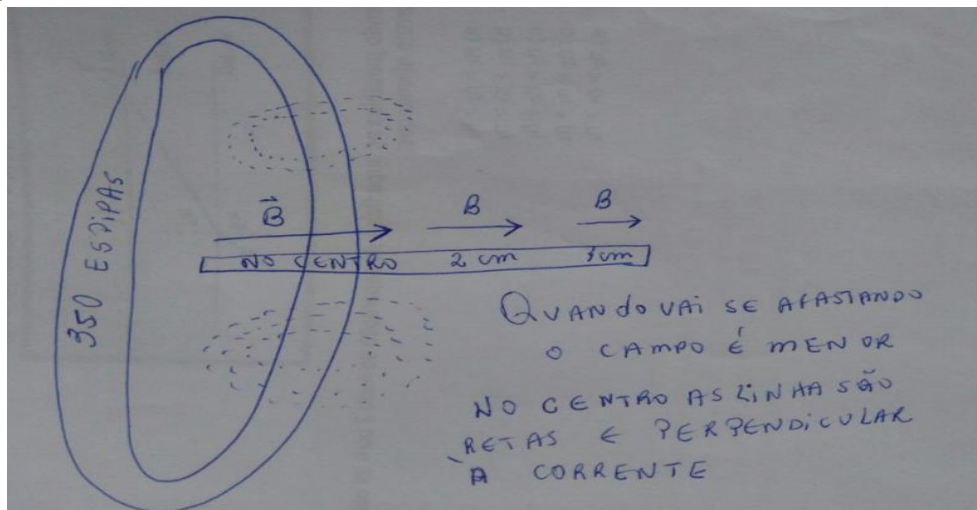 350 ESPIPAS
B
B
B
NO CENTRO 2 cm cm
QUANDO VAI SE AFASTANDO
O CAMPO É MENOR
NO CENTRO AS LINHA SÃO
RETAS E PERPENDICULAR
A CORRENTE